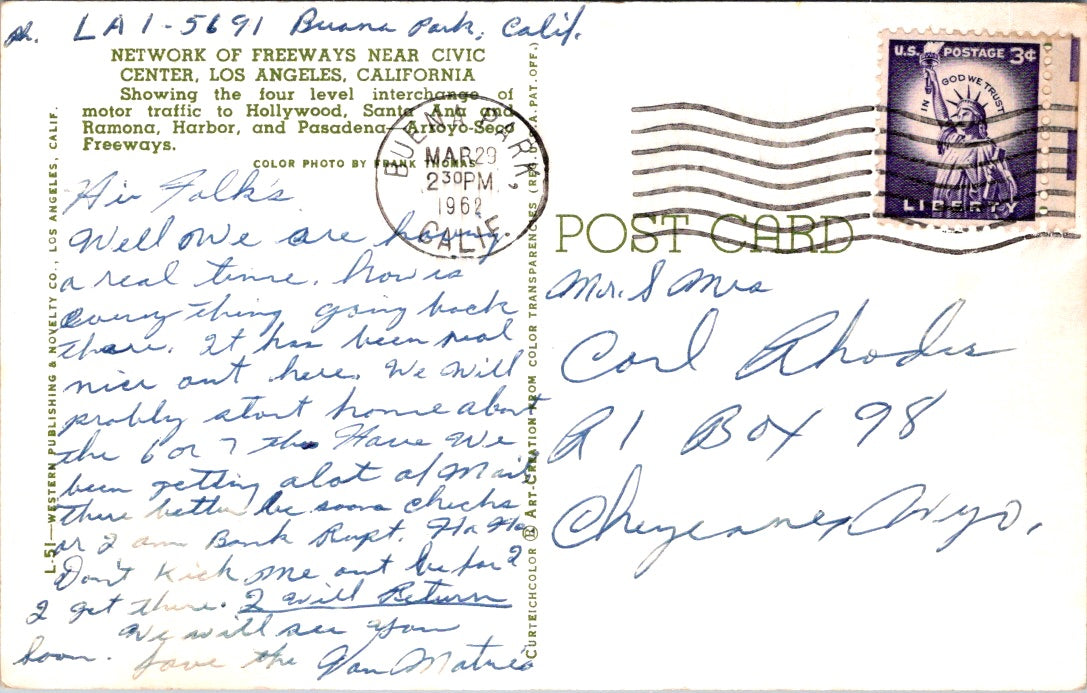 Ph. LA 1-5691 Buana Park, Calif.
NETWORK OF FREEWAYS NEAR CIVIC
CENTER, LOS ANGELES, CALIFORNIA
Showing the four level interchange of
motor traffic to Hollywood, Santa Ana and
Ramona, Harbor, and Pasadena—Arroyo-Seco
Freeways.
COLOR PHOTO BY FRANK THOMAS
Hiu Folk's
Well We are having
a real time. how is
every thing going back
there. It has been real
nice out here. We Will
probly start home about
the 6 or 7 th Have We
been getting alot of Mail
there better be some checks
or I am Bank Rupt. Ha Ha
Don't Kick me out be for
I get there. I will Return
We will see you
Soon. Love the
L-51—WESTERN PUBLISHING & NOVELTY CO., LOS ANGELES, CALIF.
CURTEICHCOLOR ® ART-CREATION FROM COLOR TRANSPARENCIES (REG. U.S.A. PAT. OFF.)
BUENA PARK,
MAR 29
2 30 PM
1962
CALIF.
U.S. POSTAGE 3¢
IN GOD WE TRUST
LIBERTY
POST CARD
Mr. & Mrs
Carl Rhodes
R 1 Box 98
Cheyenne Wyo.